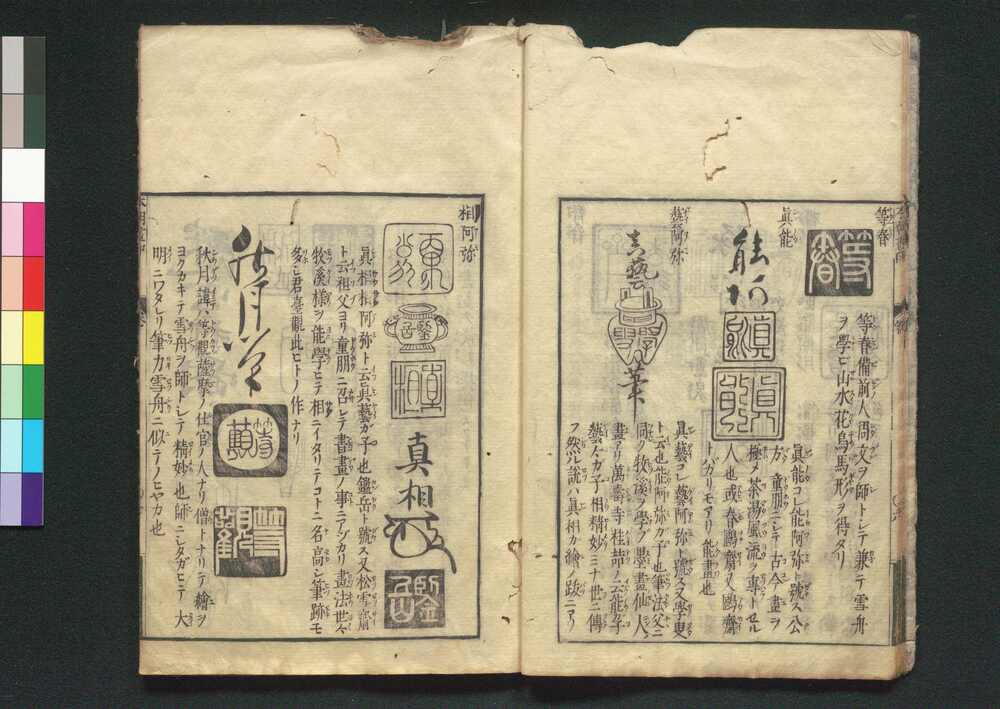 等春
等春
等春備前人周文ヲ師トシテ兼テ雪舟
ヲ學ヒ山水花鳥馬形ヲ得タリ
眞能
能阿
眞能
眞能コレ能阿弥ト號ス公
方ノ童朋ニシテ古今ノ畫ヲ
極メ茶湯風流ヲ專トセル
人也或春鷗齋又鷗齋
トガリモアリ能畫也
藝阿弥
真藝
學叟
筆
眞藝コレ藝阿弥ト號ス又學叟
ト云也能阿弥カ子也筆法父ニ
同ク牧溪ヲ學ブ墨畫仙人
畫アリ萬壽寺桂
藝ハカ子相精妙ミナ世ニ傳
フ然ル説ハ眞相カ繪ノ跋ニアリ
相阿弥
鑑岳
眞相
真相
鑑岳
眞相相阿弥ト云眞藝カ子也鑑岳ト號ス又松雪齋
ト云祖父ヨリ童朋ニ召レテ書畫ノ事ニアヅカリ畫法世々
牧溪様ヲ能學ヒテ相ニイタリテコトニ名高シ筆跡モ
多シ君臺觀此ヒトノ作ナリ
秋月筆
等
等觀
秋月諱ハ等觀薩摩ノ仕官ノ人ナリ僧トナリテ繪ヲ
ヨクカキテ雪舟ヲ師トシテ精妙也師ニシタガヒテ大
明ニワタリ筆力雪舟ニ似テノヒヤカ也